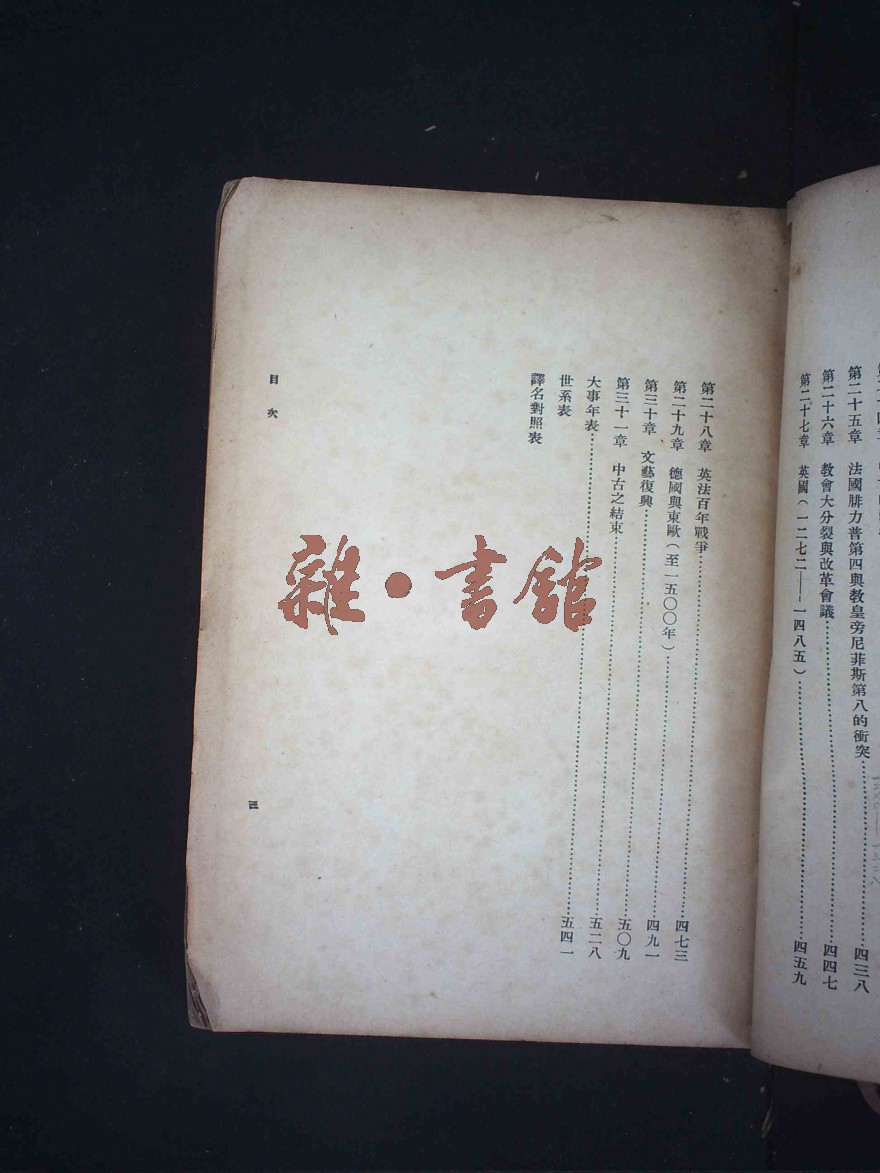 第二十五章 法國腓力普第四與教皇旁尼菲斯第八的衝突……四三八
第二十六章 教會大分裂與改革會議……四四七
第二十七章 英國(一二七二——一四八五)……四五九
第二十八章 英法百年戰爭……四七三
第二十九章 德國與東歐(至一五〇〇年)……四九一
第三十章 文藝復興……五〇九
第三十一章 中古之結束……五二八
大事年表……五四一
世系表
譯名對照表
目次
三
雜·書館